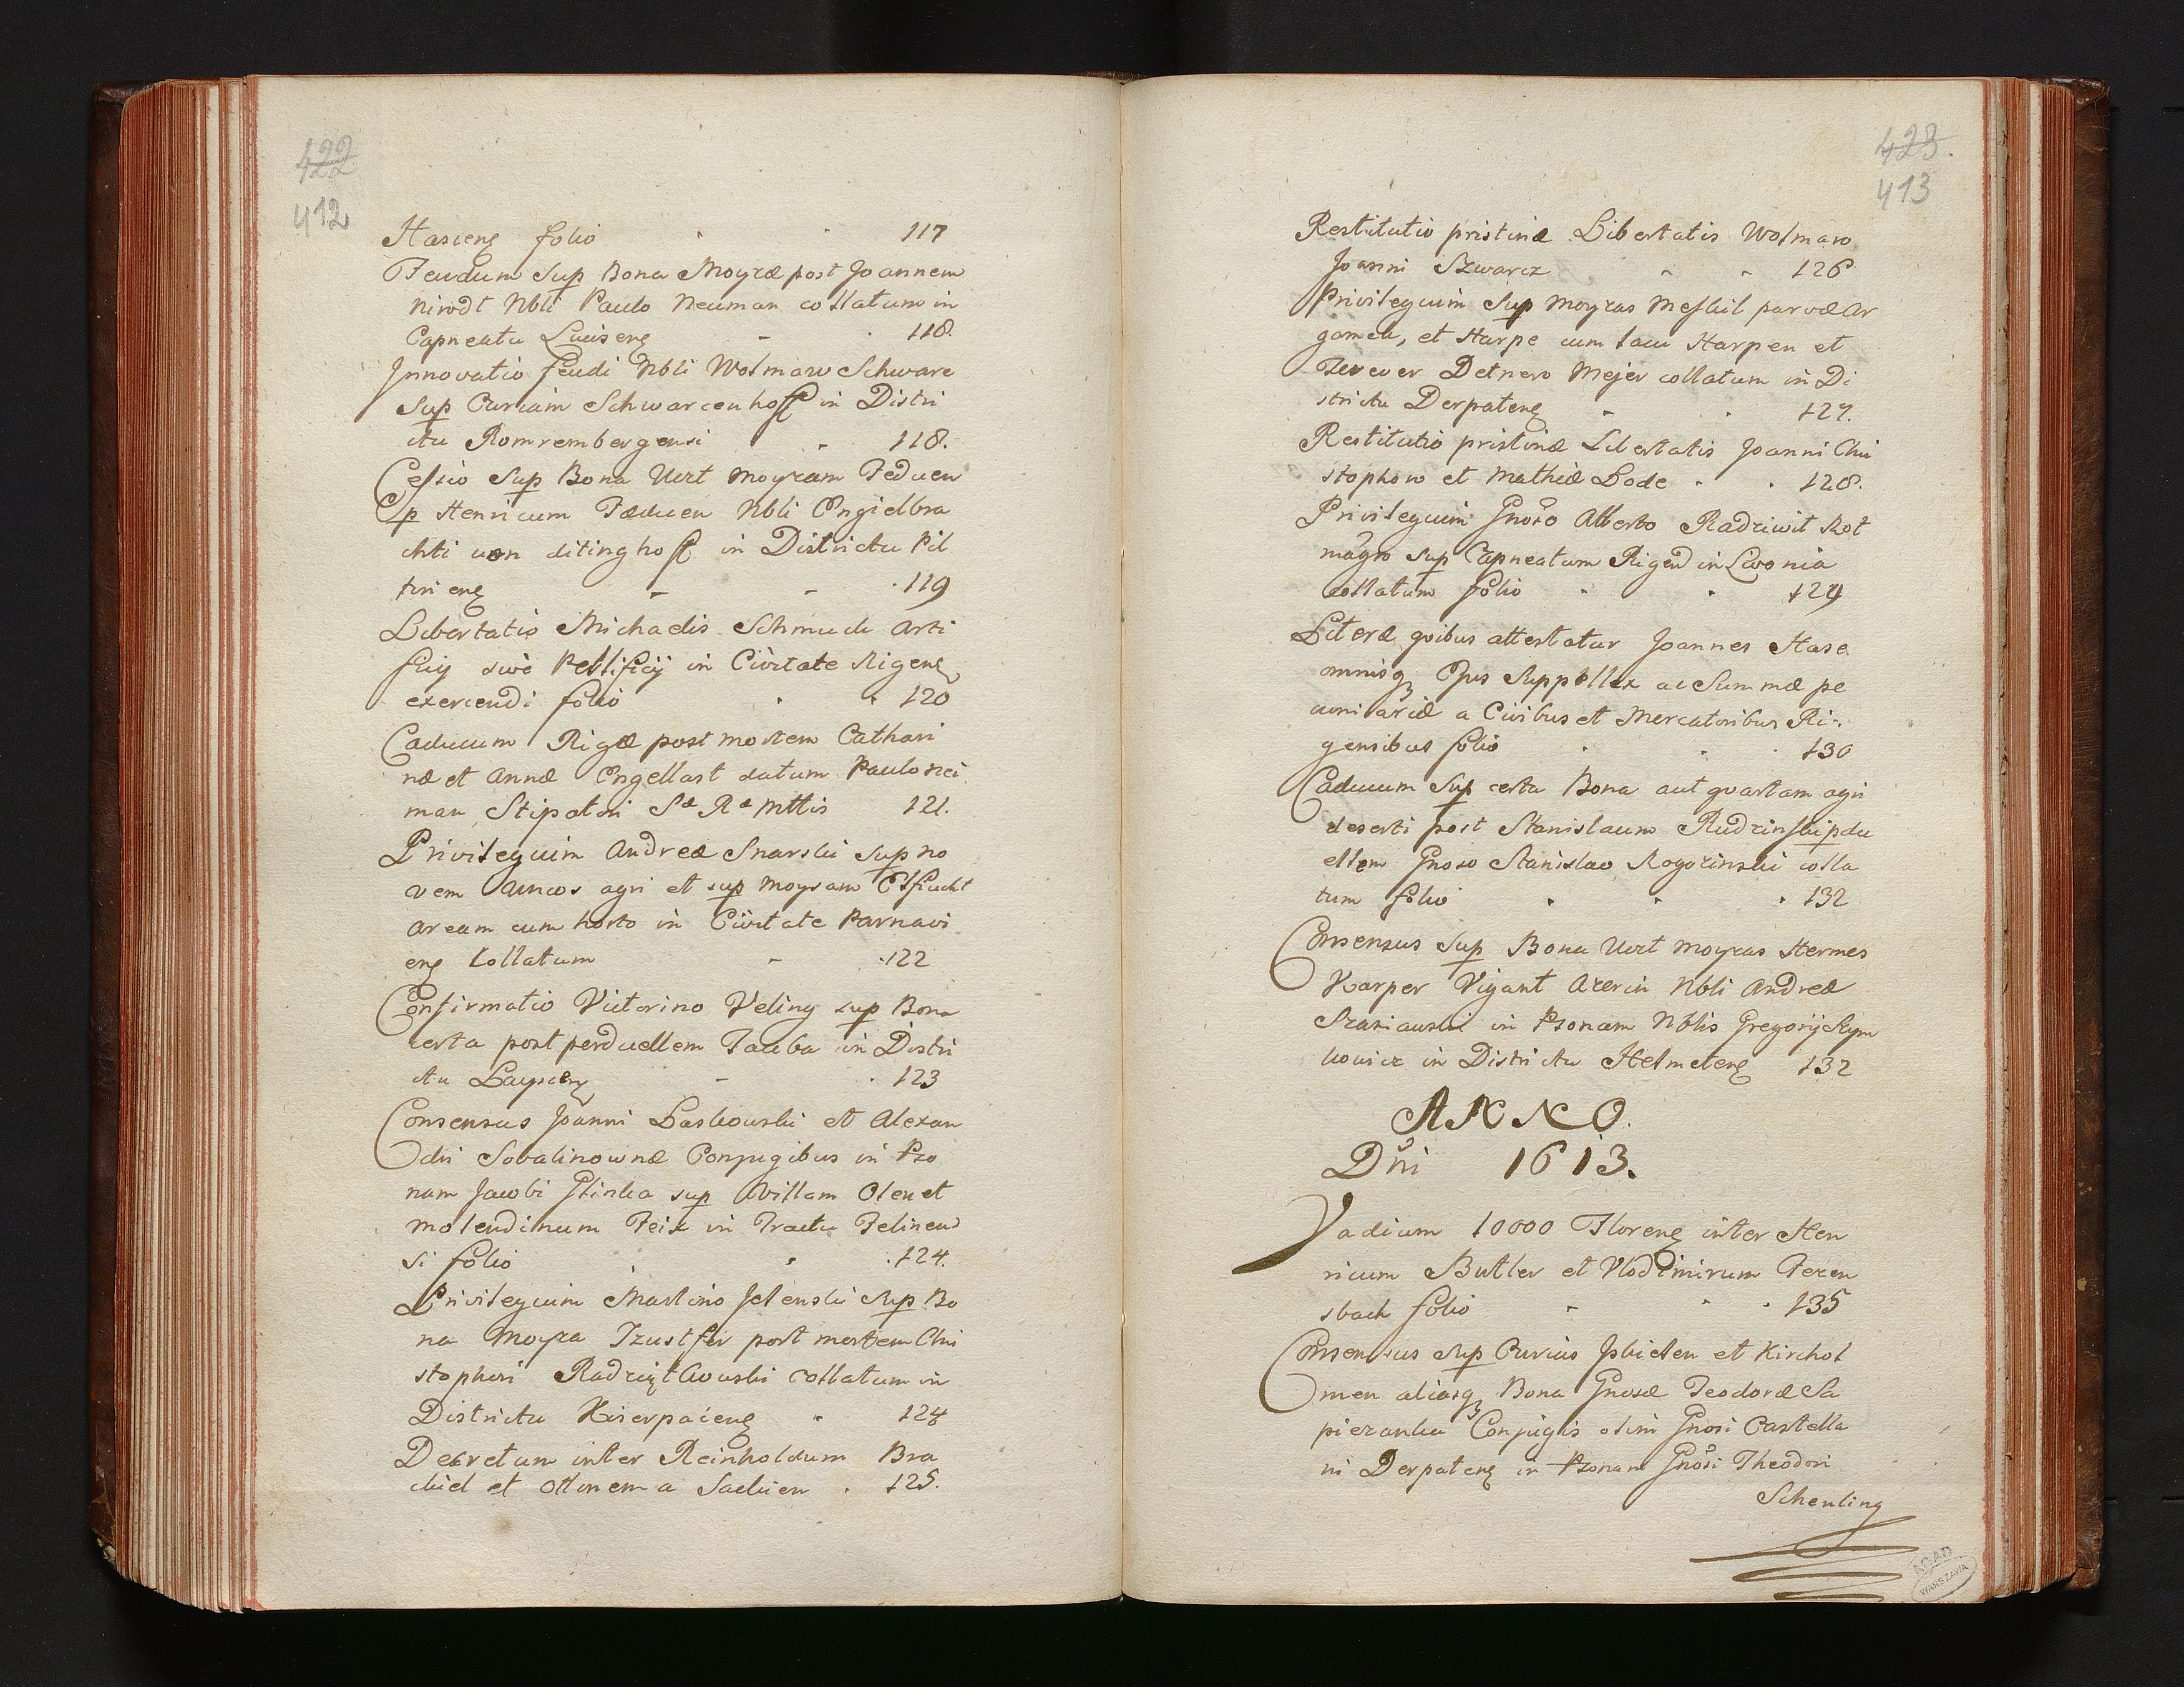 422
412
Hasieng folio 117
Feudum Sup Bona Moyzæ post Joannem
Nirodt Nbli Paulo Neuman collatum in
Capneatu Luiseng 118.
Innovatio feudi Nbli Wolmaro Schware
Sup Curiam Schwarcenhoff in Distri
ctu Romrembergensi 118.
Cessio Sup Bona Vert Moyzam Feduen
p Henricum Fæduen Nbli Engielbra
chti von ditinghoff in Districtu Pil
tin eng 119
Libertatio Michaelis Schmuck Arti
ficy sive Pellificij in Civitate Rigeng
exercendi folio 120
Caducum Rigæ post mortem Cathari
næ et Annæ Engellast datum Paulo Nei
man Stipatori Sæ Ræ Mttis 121.
Privilegium Andreæ Snarski Sup no
vem Uncos agri et sup Moyzam Elffiucht
aream cum horto in Civitate Parnavi
eng Collatum 122
Confirmatio Victorino Veling sup Bona
certa post perduellem Tauba in Distri
ctu Laysceng 123
Consensus Joanni Laskowski et Alexan
dri Sovalinownæ Conjugibus in Pso
nam Jacobi Glinka sup Willam Olen et
molendinum Feix in Tractu Felinen
si folio 124.
Privilegium Martino Jelenski Sup Bo
na Moyza Izustfer post mortem Chri
stophori Radziętkowski collatum in
Districtu Kierpaieng 124
Decretum inter Reinholdum Bra
kiel et Ottonem a Sacken 125.
423.
413
Restitutio pristinæ Libertatis Wolmaro
Joanni Szwarcz 126
Privilegium Sup Moyzas Meskil parvæ Ar
gamek, et Harpe cum lacu Harpen et
Ferever Detnero Mejer collatum in Di
strictu Derpateng 127.
Restitutio pristinæ Libertatis Joanni Chri
stophoro et Mathiæ Lode 128.
Privilegium Gnoso Alberto Radziwil Rot
magro Sup Capneatum Rigen in Livonia
collatum folio 129
Literæ quibus attestatur Joannes Hase
omnisq Opus Suppellex ac Summæ pe
cuniariæ a Civibus et Mercatoribus Ri-
gensibus folio 130
Caducum Sup certa Bona aut quartam agri
deserti post Stanislaum Rudzinski pdu
ellem Gnoso Stanislao Rogozinski colla
tum folio 132
Consensus Sup Bona Vert Moyzas Hermes
Karper Vigant Azerin Nbli Andreæ
Szaniawski in Psonam Nblis Gregorij Szym
kowicz in Districtu Helmeteng 132
ANNO.
Dni 1613.
Vadium 10000 Floreng inter Hen
ricum Butler et Vlodimirum Feren
sbach folio 135
Consensus Sup Curius Jskielen et Kirchol
men aliasq Bona Gnosæ Teodoræ Sa
piezanka Conjugis olim Gnosi Castella
ni Derpateng in Psonam Gnosi Theodori
Schenling
AGAD
WARSZAWA